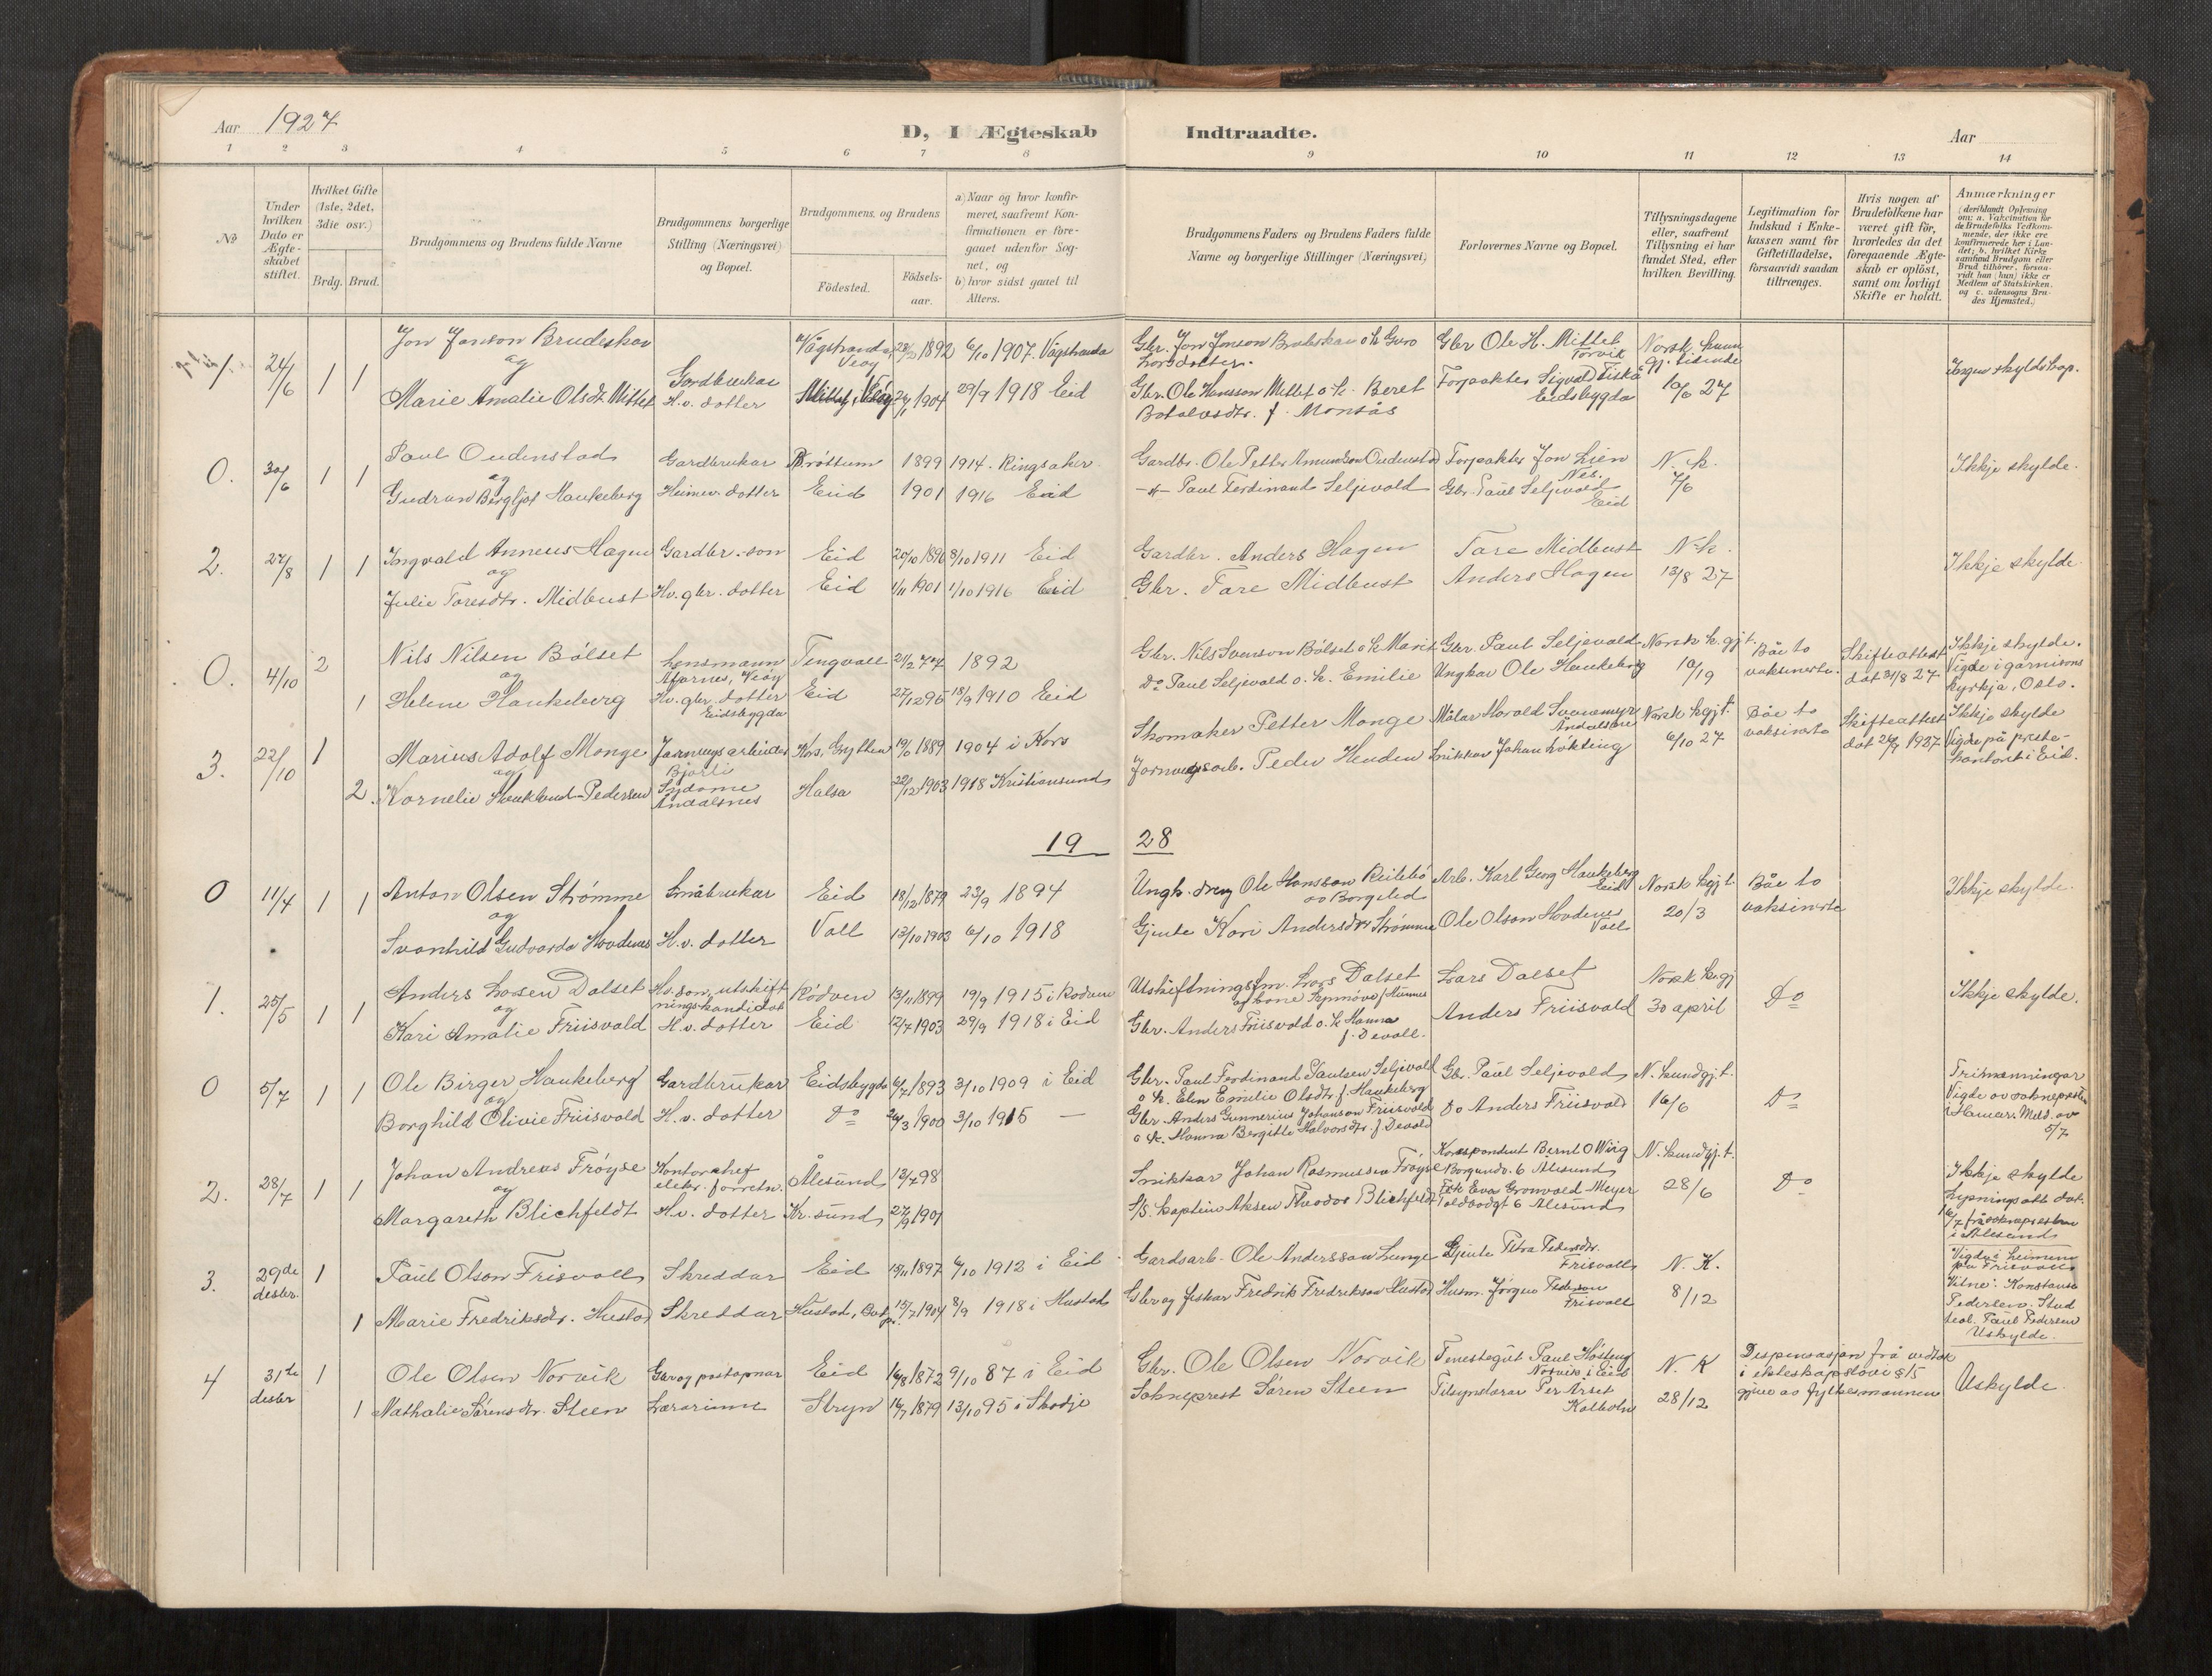 Aar 1927
D, I Ægteskab Indtraadte.
Aar
1 2 3 4 5 6 7 8 9 10 11 12 13 14
No
Under hvilken Dato er Ægteskabet stiftet.
Hvilket Gifte (1ste, 2det, 3die osv.)
Brdg. Brud.
Brudgommens og Brudens fulde Navne
Brudgommens borgerlige Stilling (Næringsvei) og Bopæl.
Brudgommens, og Brudens
Födested.
Födselsaar.
a) Naar og hvor konfirmeret, saafremt Konfirmationen er foregaaet udenfor Sognet, og
b) hvor sidst gaaet til Alters.
Brudgommens Faders og Brudens Faders fulde Navne og borgerlige Stillinger (Næringsvei)
Forlovernes Navne og Bopæl.
Tillysningsdagene eller, saafremt Tillysning ei har fundet Sted, efter hvilken Bevilling.
Legitimation for Indskud i Enkekassen samt for Giftetilladelse, forsaavidt saadan tiltrænges.
Hvis nogen af Brudefolkene har været gift för, hvorledes da det foregaaende Ægteskab er oplöst, samt om lovligt Skifte er holdt.
Anmærkninger (deriblandt Oplysning om: a. Vakcination for de Brudefolks Vedkommende, der ikke ere konfirmerede her i Landet; b. hvilket Kirkesamfund Brudgom eller Brud tilhörer, forsaavidt han (hun) ikke er Medlem af Statskirken. og c. udensogns Brudes Hjemsted.)
1. 24/6 1 1 Jon Jonson Brudeskar Gardbrukar Vågstranda, Veøy 1892 6/10 1907. Vågstranda Gbr. Jon Jonson Brudeskar o. k. Guro Larsdotter. Gbr Ole H. Mittet Torvik Norsk kunngj. tidende 10/6 27 Ingen skyldskap.
og
Marie Amalie Olsdt. Mittet H. v. dotter Mittet, Veøy 1904 29/9 1918 Eid Gbr. Ole Hansson Mittet o. k. Beret Botolvsdtr. f. Monsås Forpakter Sigvald Eidsbygda
0. 30/6 1 1 Paul Oudenstad Gardbrukar Brøttum 1899 1914. Ringsaker Gardbr. Ole Petter Amundson Oudenstad Forpakter Jon Lien Nes. N. k. 7/6 Ikkje skylde.
og
Gudrun Bergljot Haukeberg Heimev. dotter Eid 1901 1916 Eid -"- Paul Ferdinand Seljevold Gbr. Paul Seljevold Eid
2. 27/8 1 1 Ingvald Anneus Hagen Gardbr.-son Eid 20/10 1896 8/10 1911 Eid Gardbr. Anders Hagen Tare Midbust N. k. 13/8 27 Ikkje skylde.
og
Julie Toresdtr. Midbust Hv. gbr. dotter Eid 1/11 1901 1/10 1916 Eid Gbr. Tare Midbust Anders Hagen
0. 4/10 2 Nils Nilsen Bölset Lensmann Afarnes, Veøy Tingvoll 21/2 77 1892 Gbr. Nils Svenson Bölset o. k. Marit Gbr. Paul Seljevold Norsk k. gj. t. 10/19 Båe to vaksinerte. Skifteattest dat 31/8 27 Ikkje skylde. Vigde i garnisonskyrkja, Oslo.
og
1 Helene Haukeberg Hv. gbr. dotter Eidsbygda Eid 27/12 95 18/9 1910 Eid Do Paul Seljevold o. k. Emilie Ungkar Ole Haukeberg
3. 22/10 1 Marius Adolf Monge Jarnvegsarbeider Bjorli Kors, Grytten 19/6 1889 1904 i Kors Skomaker Petter Monge Målar Harald Svaremyr Åndalsnes Norsk kgj. t. 6/10 27 Båe to vaksinerte Skifteattest dat 26/9 1927 Ikkje skylde Vigde på prestekontoret i Eid.
og
2. Kornelie Haukland-Pedersen Sydame Andalsnes Halsa 22/12 1903 1918 Kristiansund Jarnvegsarb. Peder Henden Snikkar Johan Løkting
19 28
0 11/4 1 1 Anton Olsen Strømme Småbrukar Eid 18/12 1879 23/9 1894 Ungk. dreng Ole Hansson Reitebø av Borgelid Arb. Karl Georg Haukeberg Eid Norsk kgj. t. 20/3 Båe to vaksinerte Ikkje skylde.
og
Svanhild Gudvarda Hovdenes H. v. dotter Voll 13/10 1903 6/10 1918 Gjente Kari Andersdtr Strømme Ole Olson Hovdenes Voll
1. 25/5 1 1 Anders Larsen Dalset Hv. son, utskiftningskandidat Rødven 13/11 1899 19/9 1915 i Rødven Utskiftningsfm. Lars Dalset og kone Synnøve f. Hunnes Lars Dalset Norsk k. gj 30 april Do Ikkje skylde.
og
Kari Amalie Friisvold H. v. dotter Eid 12/7 1903 29/9 1918 i Eid Gbr. Anders Friisvold o. k. Hanna f. Devoll. Anders Friisvold
0 5/7 1 1 Ole Birger Haukeberg Gardbrukar Eidsbygda 6/7 1893 3/10 1909 i Eid Gbr. Paul Ferdinand Paulsen Seljevold o. k. Elen Emilie Olsdtr f. Haukeberg Gbr. Paul Seljevold N. kundgj. t. 16/6 Do Trimenningar Vigde av sokneprest i Hamar. Meld. av 5/7
og
Borghild Olivie Friisvold H. v. dotter Do 26/3 1900 3/10 1915 — Gbr. Anders Gunnerius Johanson Friisvold o. k. Hanna Bergitte Halvorsdtr. f. Devold Do Anders Friisvold
2. 28/7 1 1 Johan Andreas Frøyse Kontorchef elektr. forretn. Ålesund 13/7 98 Snikkar Johan Rasmussen Frøyse Korrespondent Bernt O Wiig Borgundv. 6 Alesund N. kundgj. t. 28/6 Do Ikkje skylde Lysningsatt. dat. 16/7 frå soknepresten i Alesund
og
Margareth Blichfeldt H. v. dotter Kr. sund 27/9 1901 S/S. kaptein Aksen Theodor Blichfeldt Frk Eva Gronvold Meyer Toldbodgt 6 Alesund
3. 29de desbr. 1 Paul Olson Frisvoll Skreddar Eid 18/11 1897 6/10 1912 i Eid Gardsarb. Ole Anderssøn Lunge Gjente Petra Pedersdtr. Frisvoll N. K. 8/12 Vigde i heimen på Frisvoll Vitne: Konstanse Pedersen. Stud teol. Paul Pedersen Uskylde.
1 Marie Fredriksdtr. Hustad Skreddar Hustad, 15/7 1904 8/9 1918 i Hustad Gbr og fiskar Fredrik Fredrikson Hustad Husm. Jørgen Pederson Frisvoll
4 31te desbr 1 Ole Olsen Norvik Gbr og postopnar Eid 16/8 1872 9/10 87 i Eid Gbr. Ole Olsen Norvik Tenestegut Paul Høsteng Norvik i Eid N. K 28/12 Dispensasjon frå vedtak i ekteskapslovi § 15 gjeve av fylkesmannen Uskylde.
1 Nathalie Sørensdtr. Steen Lærarinne Stryn 16/7 1879 13/10 95 i Skodje Sokneprest Søren Steen Tilsynslærar Per Arset Kolbotn